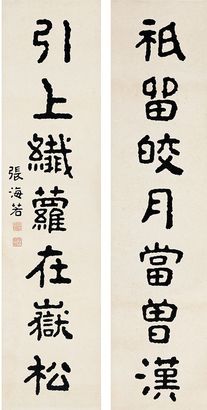 祇留皎月當曽漢
引上纖蘿在嶽松
張海若